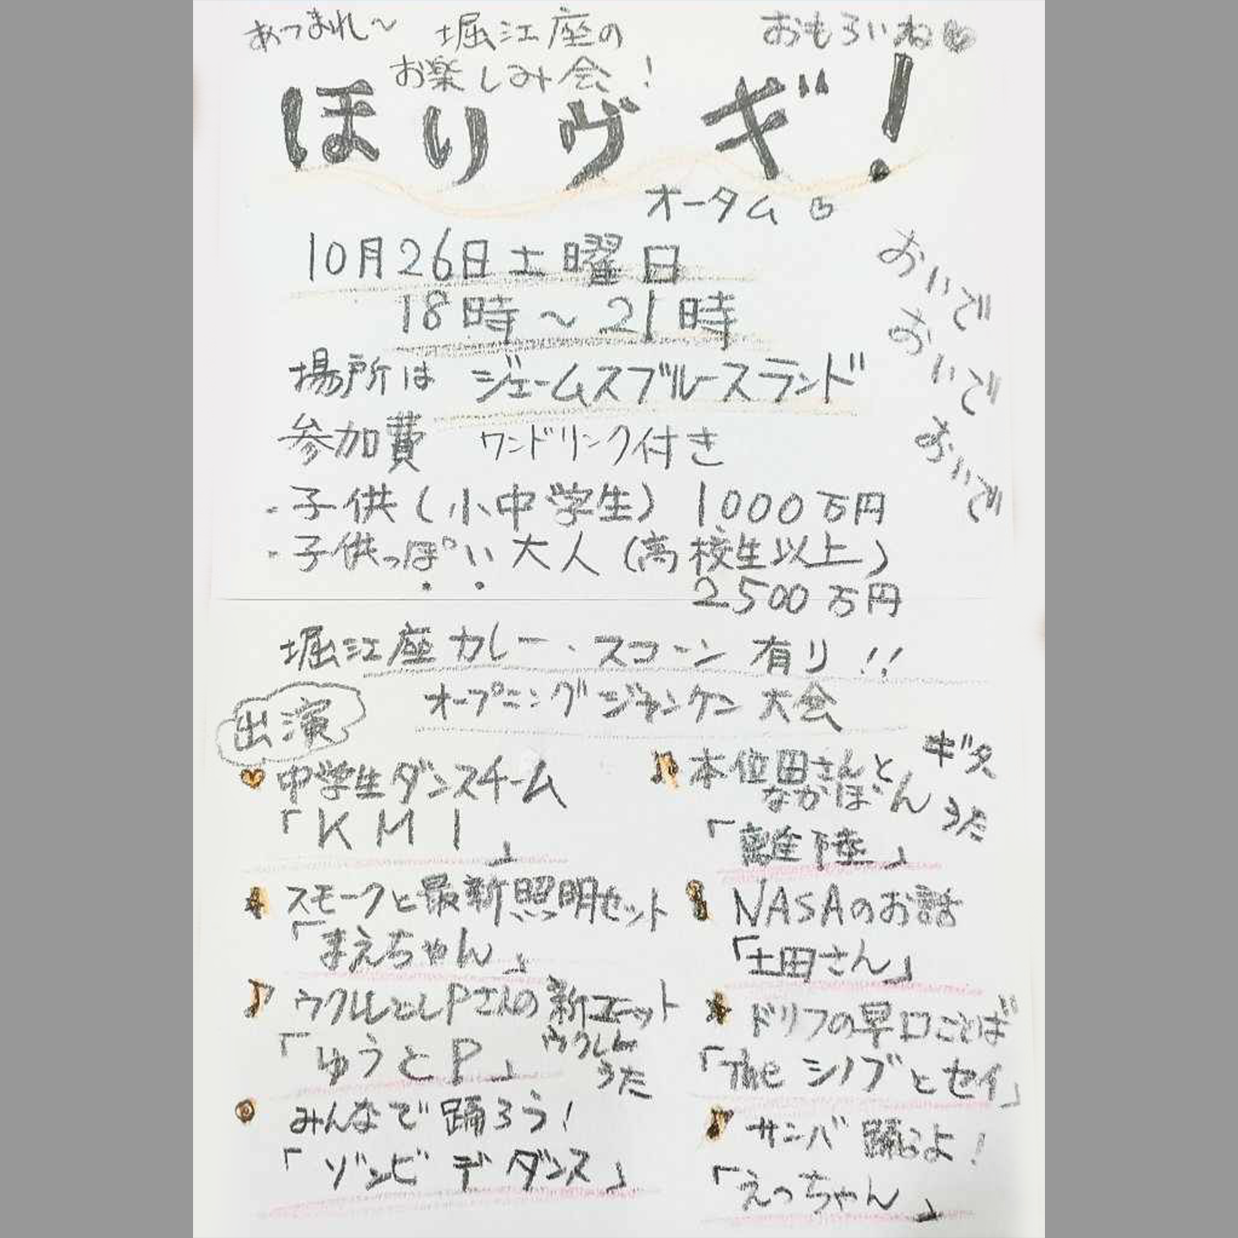 あつまれ～ 堀江座の おもろいね
お楽しみ会！
ほりヴギ！
オータム
10月26日土曜日
18時～21時
場所は ジェームスブルースランド
おいで
おいで
おいで
参加費 ワンドリンク付き
・子供（小中学生）1000万円
・子供っぽい大人（高校生以上）
2500万円
堀江座カレー・スコーン有り!!
オープニングジャンケン大会
出演
中学生ダンスチーム
「KMI」
スモークと最新照明セット
「まえちゃん」
ウクレレとしPさんの新ユニット
「ゆうとP」 ウクレレ
うた
みんなで踊ろう！
「ゾンビ デ ダンス」
本位田さんと ギタ
なかぼん うた
「離陸」
NASAのお話
「土田さん」
ドリフの早口ことば
「The シノブとセイ」
サンバ 踊るよ！
「えっちゃん」